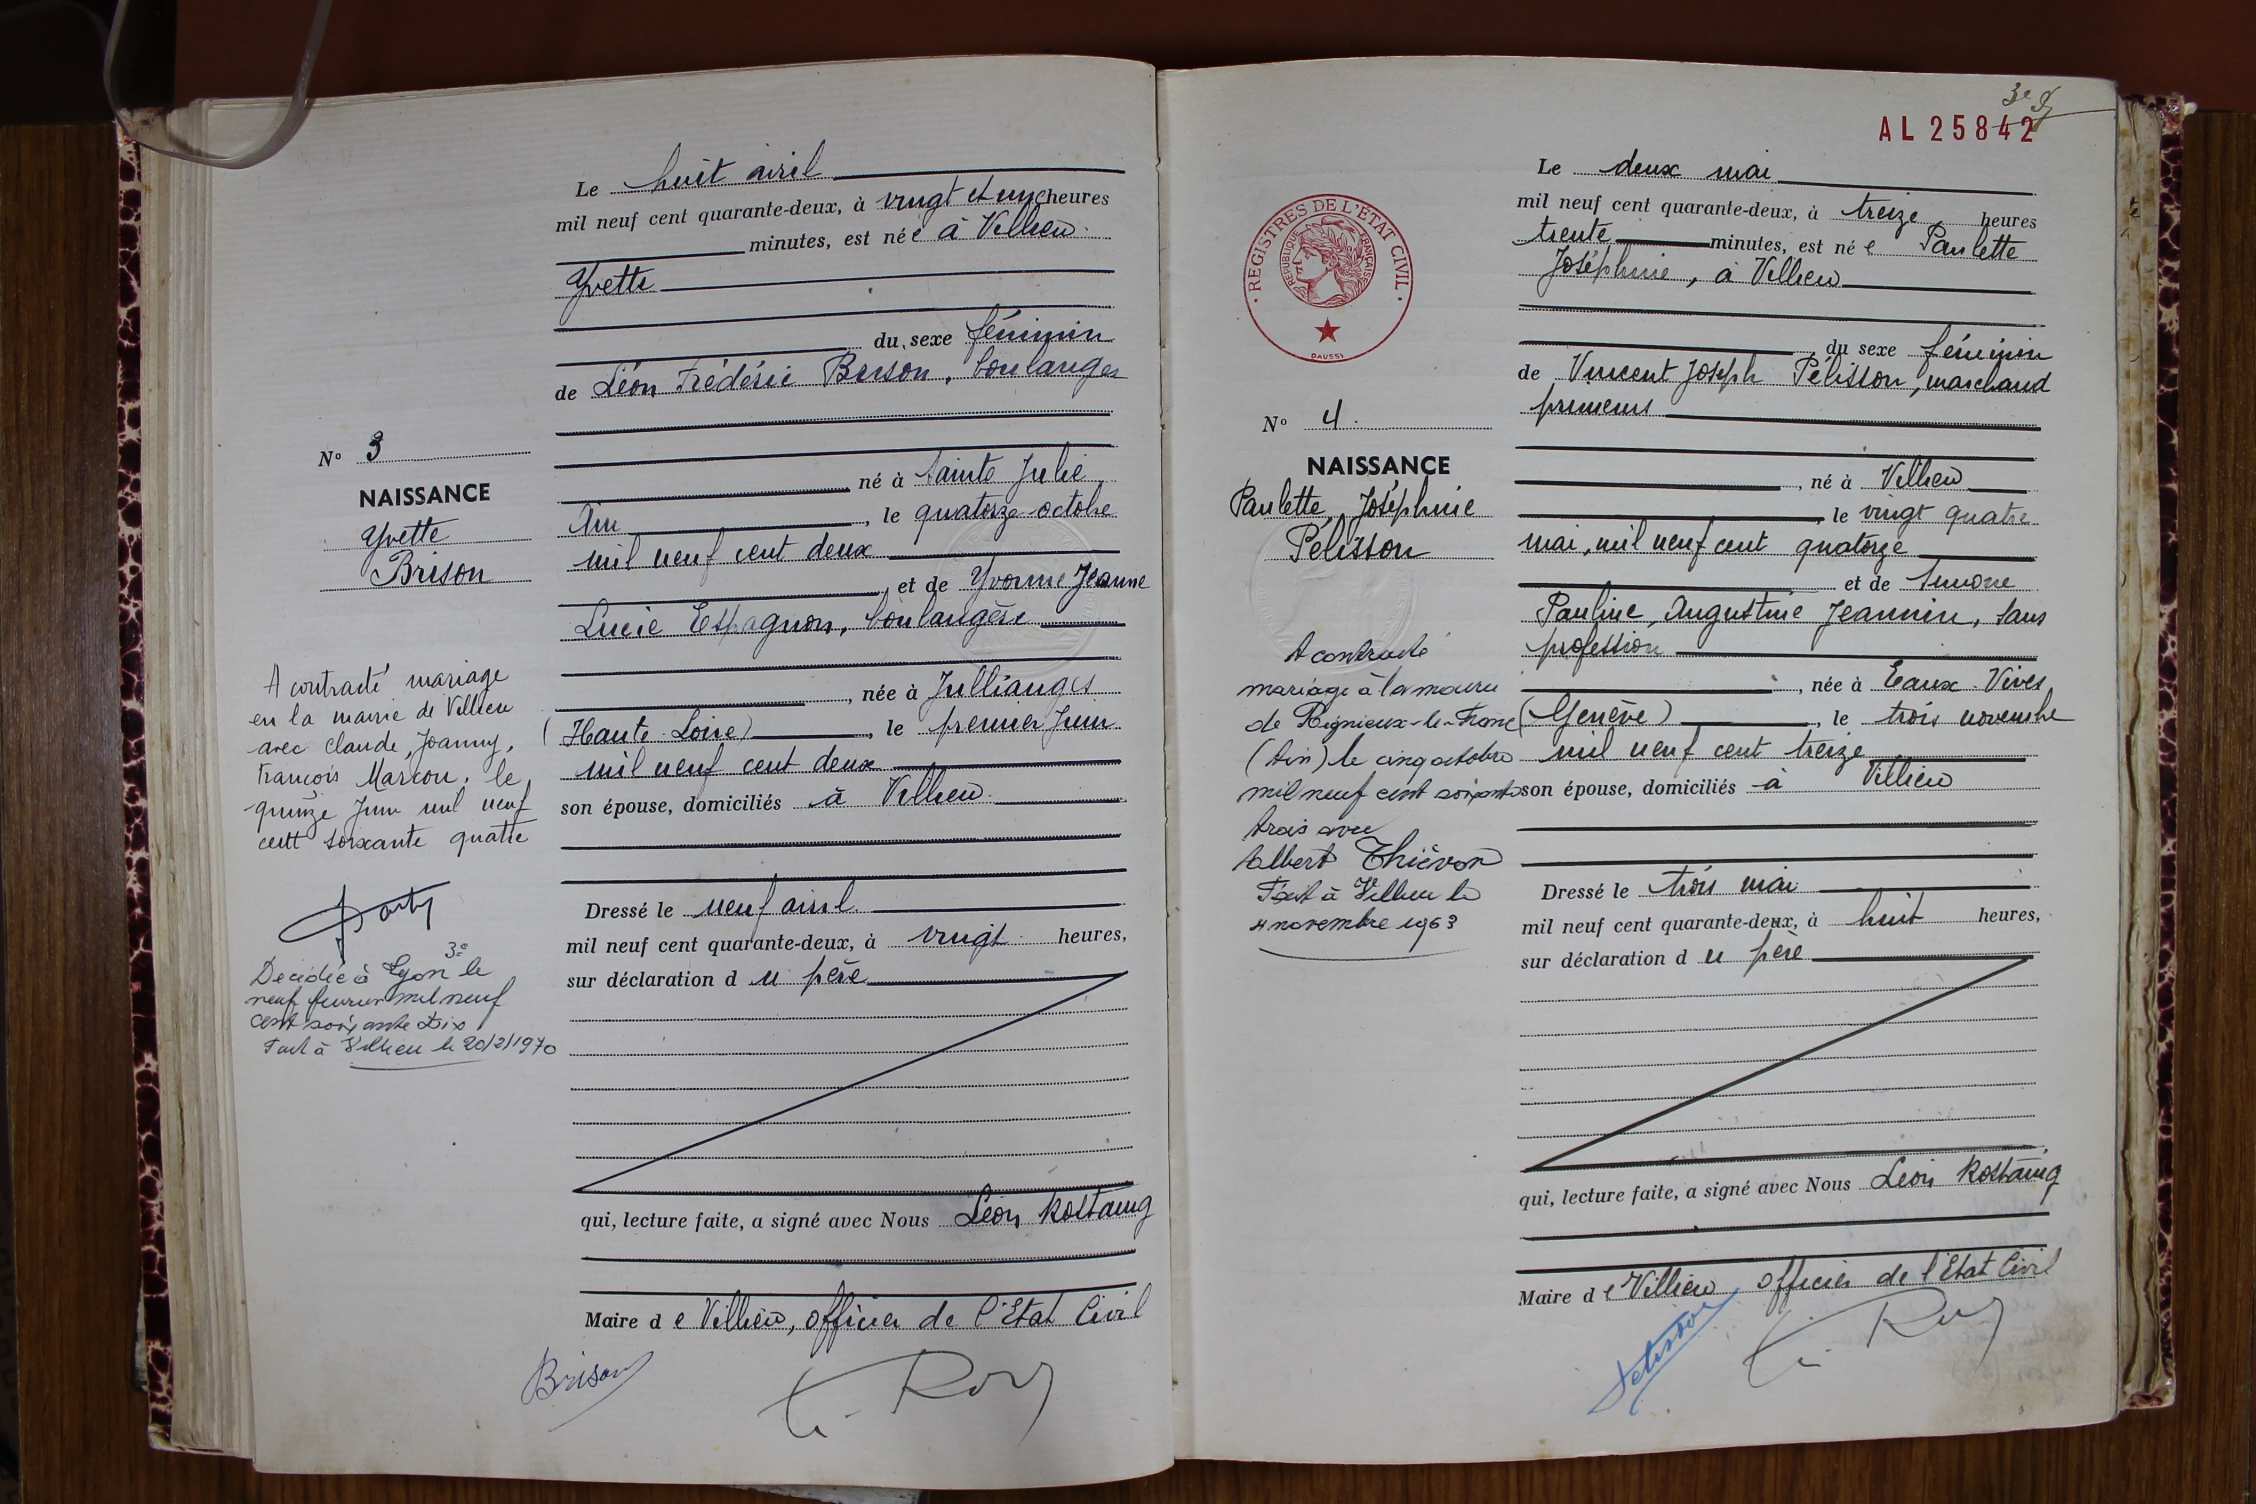 Le huit avril
mil neuf cent quarante-deux, à vingt et une heures
minutes, est née à Villieu
Yvette
du sexe féminin
de Léon Frédéric Brison, boulanger
né à Sainte Julie
Ain, le quatorze octobre
mil neuf cent deux
et de Yvonne Jeanne
Lucie Espagnon, boulangère
née à Jullianges
(Haute-Loire), le premier Juin
mil neuf cent deux
son épouse, domiciliés à Villieu
Dressé le neuf avril
mil neuf cent quarante-deux, à vingt heures,
sur déclaration du père
qui, lecture faite, a signé avec Nous Léon Rostaing
Maire de Villieu, officier de l'Etat Civil
Brison
N° 3
NAISSANCE
Yvette
Brison
A contracté mariage
en la mairie de Villieu
avec Claude, Joanny,
François Marcon, le
quinze Juin mil neuf
cent soixante quatre
Décédée à Lyon 3e le
neuf février mil neuf
cent soixante dix
Fait à Villieu le 20/2/1970
3e
AL 25842
REGISTRES DE L'ETAT CIVIL
REPUBLIQUE FRANÇAISE
DAUSSY
N° 4.
NAISSANCE
Paulette, Joséphine
Pélisson
A contracté
mariage à la mairie
de Rignieux-le-Franc
(Ain) le cinq octobre
mil neuf cent soixante
trois avec
Albert Thiévon
Fait à Villieu le
4 novembre 1963
Le deux mai
mil neuf cent quarante-deux, à treize heures
trente minutes, est née Paulette
Joséphine, à Villieu
du sexe féminin
de Vincent Joseph Pélisson, marchand
primeurs
né à Villieu
le vingt quatre
mai, mil neuf cent quatorze
et de Simone
Pauline, Augustine Jeannin, sans
profession
née à Eaux-Vives
(Genève), le trois novembre
mil neuf cent treize
son épouse, domiciliés à Villieu
Dressé le trois mai
mil neuf cent quarante-deux, à huit heures,
sur déclaration du père
qui, lecture faite, a signé avec Nous Léon Rostaing
Maire de Villieu, officier de l'Etat Civil
Pélisson